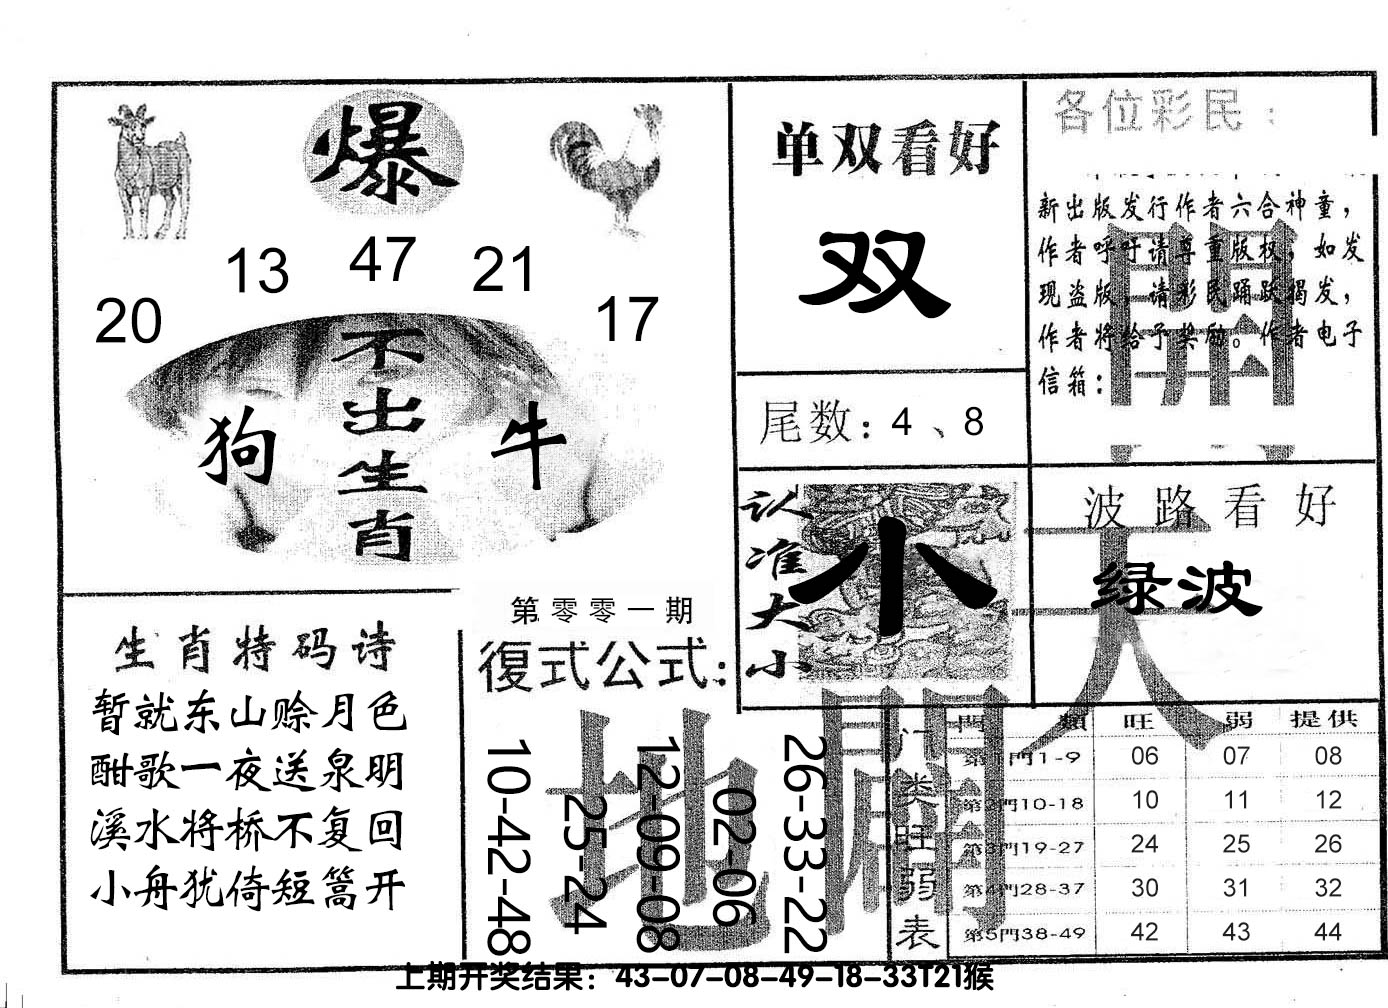 爆
13 47 21
20 17
不出生肖
狗 牛
单双看好
双
尾数：4、8
各位彩民：
新出版发行作者六合神童，
作者呼吁请尊重版权，如发
现盗版，请彩民踊跃揭发，
作者将给予奖励。作者电子
信箱：
认准大小
小
波路看好
绿波
生肖特码诗
暂就东山赊月色
酣歌一夜送泉明
溪水将桥不复回
小舟犹倚短篙开
第零零一期
復式公式：
10-42-48
25-24
12-09-08
02-06
26-33-22
天
地
開
門類 旺 弱 提供
第1門1-9 06 07 08
第2門10-18 10 11 12
第3門19-27 24 25 26
第4門28-37 30 31 32
第5門38-49 42 43 44
门类旺弱表
上期开奖结果：43-07-08-49-18-33T21猴